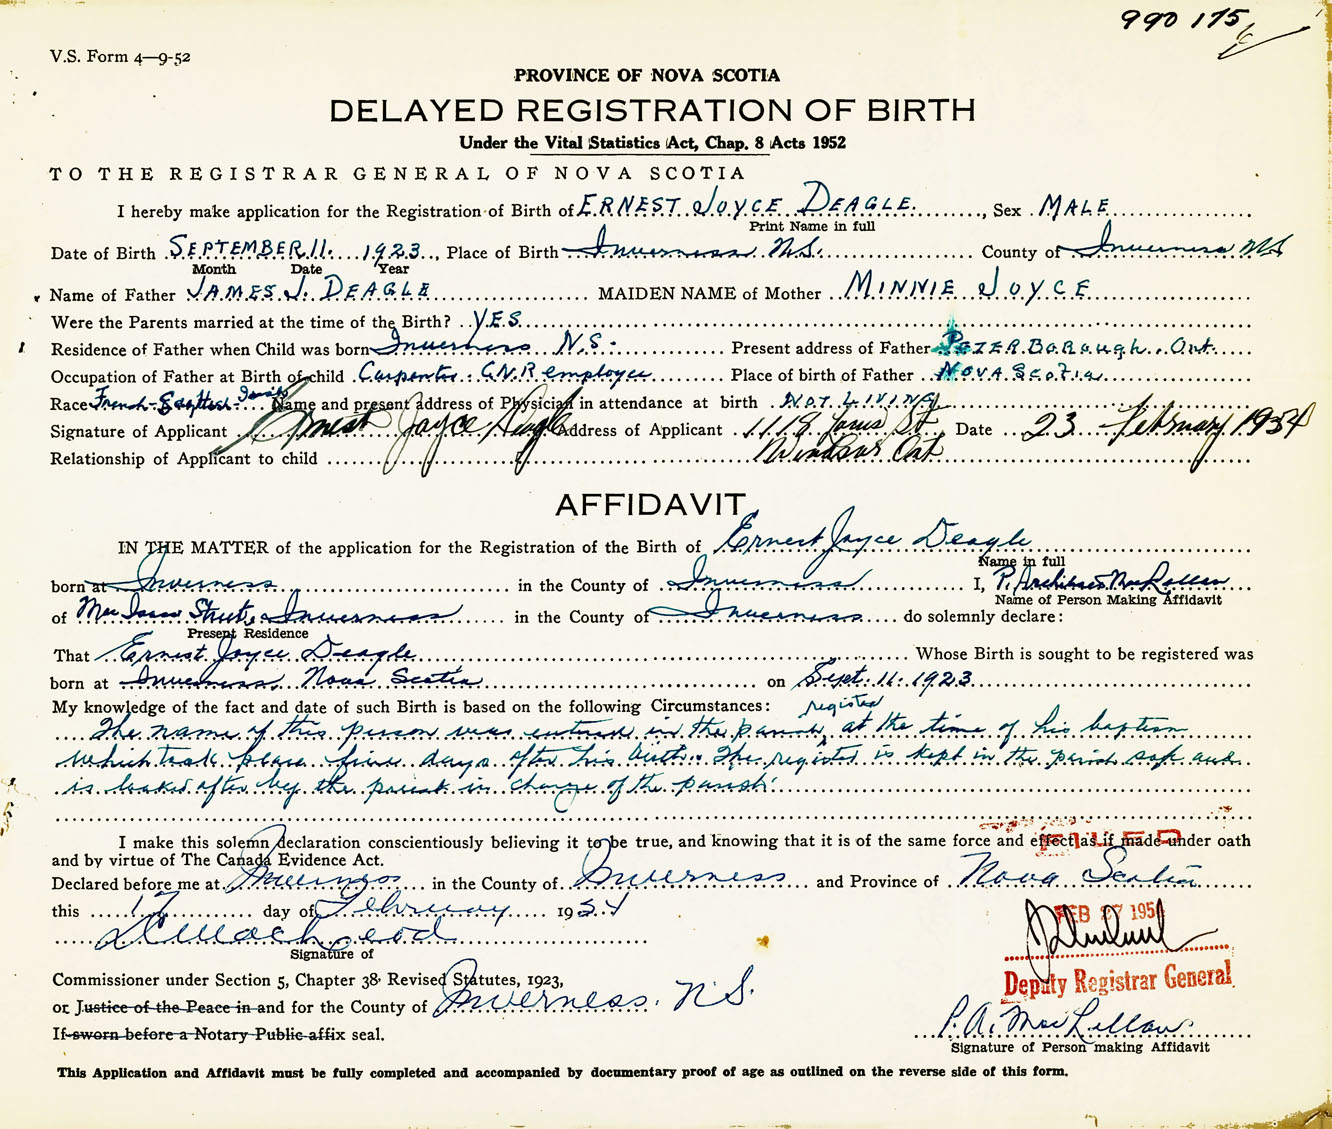 990 175
V.S. Form 4—9-52
PROVINCE OF NOVA SCOTIA
DELAYED REGISTRATION OF BIRTH
Under the Vital Statistics Act, Chap. 8 Acts 1952
TO THE REGISTRAR GENERAL OF NOVA SCOTIA
I hereby make application for the Registration of Birth of ERNEST JOYCE DEAGLE, Sex MALE
Print Name in full
Date of Birth SEPTEMBER 11. 1923, Place of Birth Inverness N.S. County of Inverness N.S
Month Date Year
Name of Father JAMES J. DEAGLE MAIDEN NAME of Mother MINNIE JOYCE
Were the Parents married at the time of the Birth? YES
Residence of Father when Child was born Inverness N.S. Present address of Father PETERBOROUGH Ont.
Occupation of Father at Birth of child Carpenter C.N.R employee Place of birth of Father NOVA SCOTIA
Race French-Scottish-Irish Name and present address of Physician in attendance at birth NOT LIVING
Signature of Applicant Ernest Joyce Deagle Address of Applicant 1118 Louis St. Date 23 February 1954
Relationship of Applicant to child Windsor Ont
AFFIDAVIT
IN THE MATTER of the application for the Registration of the Birth of Ernest Joyce Deagle
Name in full
born at Inverness in the County of Inverness I, P. Archibald MacLellan
Name of Person Making Affidavit
of MacIsaac Street, Inverness in the County of Inverness do solemnly declare:
Present Residence
That Ernest Joyce Deagle Whose Birth is sought to be registered was
born at Inverness, Nova Scotia on Sept. 11. 1923
My knowledge of the fact and date of such Birth is based on the following Circumstances:
register
The name of this person was entered in the parish at the time of his baptism
which took place five days after his birth. The register is kept in the parish safe and
is looked after by the priest in charge of the parish.
I make this solemn declaration conscientiously believing it to be true, and knowing that it is of the same force and effect as if made under oath
and by virtue of The Canada Evidence Act.
FILED
Declared before me at Inverness in the County of Inverness and Province of Nova Scotia
this 17 day of February 1954
FEB 27 1954
Signature of
Deputy Registrar General
Commissioner under Section 5, Chapter 38, Revised Statutes, 1923,
or Justice of the Peace in and for the County of Inverness. N.S.
If sworn before a Notary Public affix seal.
P.A. MacLellan
Signature of Person making Affidavit
This Application and Affidavit must be fully completed and accompanied by documentary proof of age as outlined on the reverse side of this form.